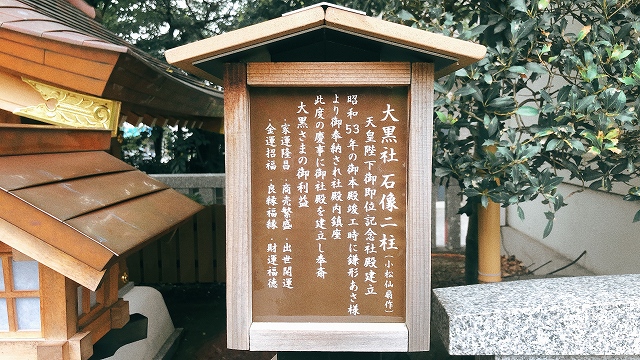 大黒社 石像二柱(小松仙扇作)
天皇陛下御即位記念社殿建立
昭和53年の御本殿竣工時に鎌形あさ様
より御奉納され社殿内鎮座
此度の慶事に御社殿を建立し奉斎
大黒さまの御利益
・家運隆昌・商売繁盛・出世開運
・金運招福・良縁福縁・財運福徳